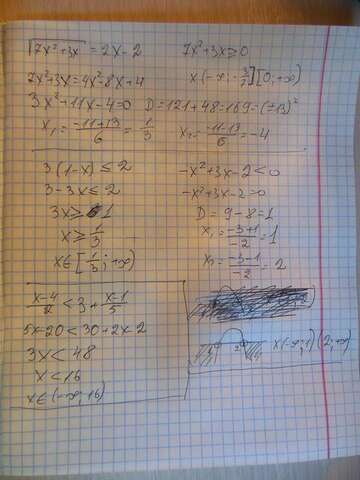 √7x²+3x = 2x-2
7x²+3x≥0
7x²+3x=4x²-8x+4
x(-∞;-3/7][0;+∞)
3x²+11x-4=0 D=121+48=169=(±13)²
x₁=(-11+13)/6=1/3 x₂=(-11-13)/6=-4
3(1-x)≤2
3-3x≤2
3x≥1
x≥1/3
x∈[1/3;+∞)
-x²+3x-2<0
-x²+3x-2=0
D=9-8=1
x₁=(-3+1)/-2=1
x₂=(-3-1)/-2=2
x(-∞;1)(2;+∞)
(x-4)/2<3+(x-1)/5
5x-20<30+2x-2
3x<48
x<16
x∈(-∞;16)